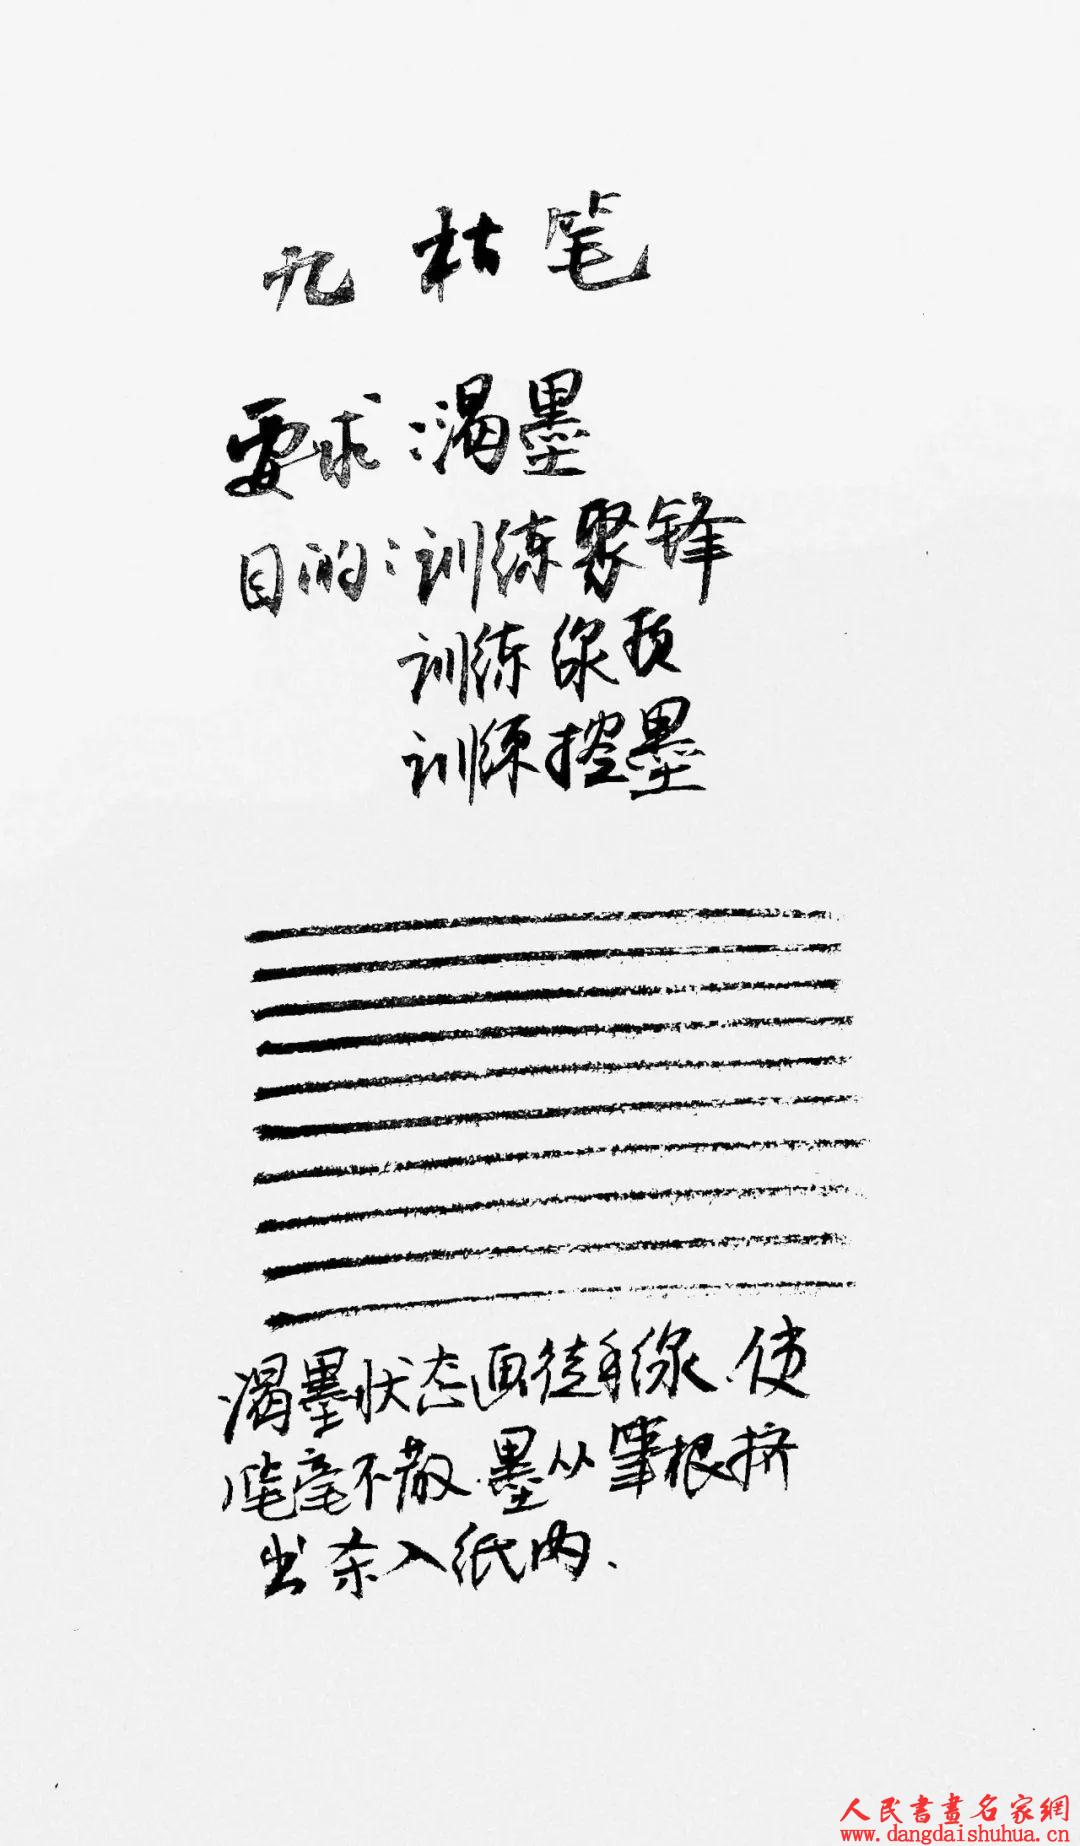 九 枯笔
要求：渴墨
目的：训练聚锋
训练线质
训练控墨
渴墨状态画徒手线、使
笔毫不散、墨从笔根挤
出杀入纸内、
人民書畫名家網
www.dangdaishuhua.cn